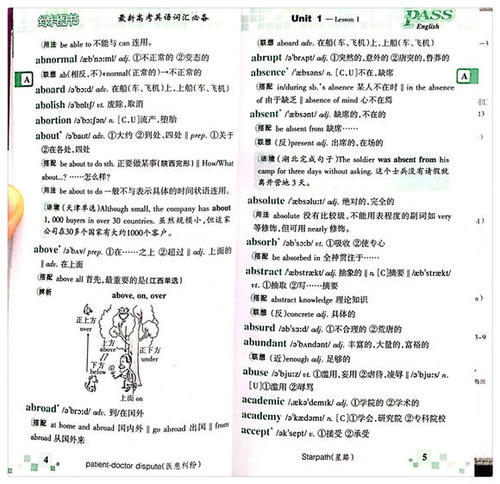 绿卡图书 最新高考英语词汇必备
[用法] be able to 不能与 can 连用。
abnormal /æb'nɔ:ml/ adj. ①不正常的 ②变态的
[联想] ab(相反,不)+normal(正常的)→不正常的
A
aboard /ə'bɔ:d/ adv. 在船(车、飞机)上,上船(车、飞机)
abolish /ə'bɒlɪʃ/ vt. 废除,取消
abortion /ə'bɔ:ʃən/ n. [C,U]流产,堕胎
about /ə'baʊt/ adv. ①大约 ②到处,四处 ‖ prep. ①关于
②在各处,四处
[搭配] be about to do sth. 正要做某事(陕西完形) ‖ How/What
about...? ……怎么样?
[用法] be about to do 一般不与表示具体的时间状语连用。
[语境] (天津单选)Although small, the company has about
1, 000 buyers in over 30 countries. 虽然规模小,但这家
公司在30多个国家有大约1000个客户。
above* /ə'bʌv/ prep. ①在……之上 ②超过 ‖ adj. 上面的
‖ adv. 在上面
[搭配] above all 首先,最重要的是(江西单选)
[辨析] above, on, over
正上方
over
上方
above
下方
below
正下方
under
上面 on
abroad* /ə'brɔ:d/ adv. 到/在国外
[搭配] at home and abroad 国内外 ‖ go abroad 出国 ‖ from
abroad 从国外来
4
patient-doctor dispute(医患纠纷)
Unit 1 — Lesson 1
PASS
English
[联想] aboard adv. 在船(车、飞机)上,上船(车、飞机)
abrupt /ə'brʌpt/ adj. ①突然的,意外的 ②唐突的,鲁莽的
absence* /'æbsəns/ n. [C,U]不在,缺席
A
[搭配] in/during sb.'s absence 某人不在时 ‖ in the absence
of 由于缺乏 ‖ absence of mind 心不在焉
absent* /'æbsənt/ adj. 缺席的,不在的
[搭配] be absent from 缺席……
[联想] (反)present adj. 出席的,在场的
[语境] (湖北完成句子)The soldier was absent from his
camp for three days without asking. 这个士兵没有请假就
离开营地3天。
absolute /'æbsəlu:t/ adj. 绝对的,完全的
[用法] absolute 没有比较级,不能用表程度的副词如 very
等修饰,但可用 nearly 修饰。
absorb* /əb'sɔ:b/ vt. ①吸收 ②使专心
[搭配] be absorbed in 全神贯注于……
abstract /'æbstrækt/ adj. 抽象的 ‖ n. [C]摘要 ‖ /æb'strækt/
vt. ①抽取 ②写……摘要
[搭配] abstract knowledge 理论知识
[联想] (反)concrete adj. 具体的
absurd /əb'sɜ:d/ adj. ①不合理的 ②荒唐的
abundant /ə'bʌndənt/ adj. 丰富的,大量的,富裕的
[联想] (近)enough adj. 足够的
abuse /ə'bju:z/ vt. ①滥用,妄用 ②虐待,凌辱 ‖ /ə'bju:s/ n.
[U]①滥用 ②辱骂
academic /ˌækə'demɪk/ adj. ①学院的 ②学术的
academy /ə'kædəmi/ n. [C]①学会,研究院 ②专科院校
accept* /ək'sept/ v. ①接受 ②承受
Starpath(星路)
5